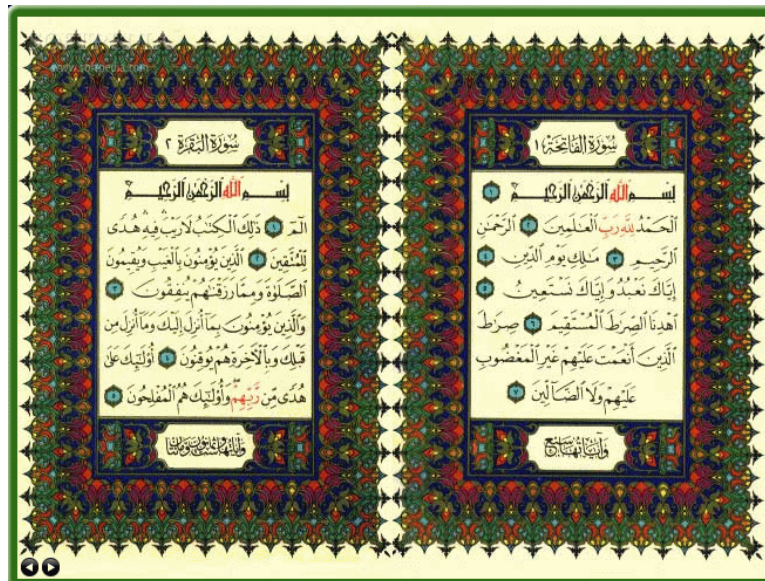 سُورَةُ الفَاتِحَةِ ١
بِسْمِ اللَّهِ الرَّحْمَٰنِ الرَّحِيمِ ١
الْحَمْدُ لِلَّهِ رَبِّ الْعَٰلَمِينَ ٢ الرَّحْمَٰنِ
الرَّحِيمِ ٣ مَٰلِكِ يَوْمِ الدِّينِ ٤
إِيَّاكَ نَعْبُدُ وَإِيَّاكَ نَسْتَعِينُ ٥
اهْدِنَا الصِّرَٰطَ الْمُسْتَقِيمَ ٦ صِرَٰطَ
الَّذِينَ أَنْعَمْتَ عَلَيْهِمْ غَيْرِ الْمَغْضُوبِ
عَلَيْهِمْ وَلَا الضَّآلِّينَ ٧
وَآيَاتُهَا سَبْعٌ
سُورَةُ البَقَرَةِ ٢
بِسْمِ اللَّهِ الرَّحْمَٰنِ الرَّحِيمِ
الٓمٓ ١ ذَٰلِكَ الْكِتَٰبُ لَا رَيْبَ فِيهِ هُدًى
لِّلْمُتَّقِينَ ٢ الَّذِينَ يُؤْمِنُونَ بِالْغَيْبِ وَيُقِيمُونَ
الصَّلَوٰةَ وَمِمَّا رَزَقْنَٰهُمْ يُنفِقُونَ ٣
وَالَّذِينَ يُؤْمِنُونَ بِمَآ أُنزِلَ إِلَيْكَ وَمَآ أُنزِلَ مِن
قَبْلِكَ وَبِالْآخِرَةِ هُمْ يُوقِنُونَ ٤ أُو۟لَٰٓئِكَ عَلَىٰ
هُدًى مِّن رَّبِّهِمْ وَأُو۟لَٰٓئِكَ هُمُ الْمُفْلِحُونَ ٥
www.softpedia.com